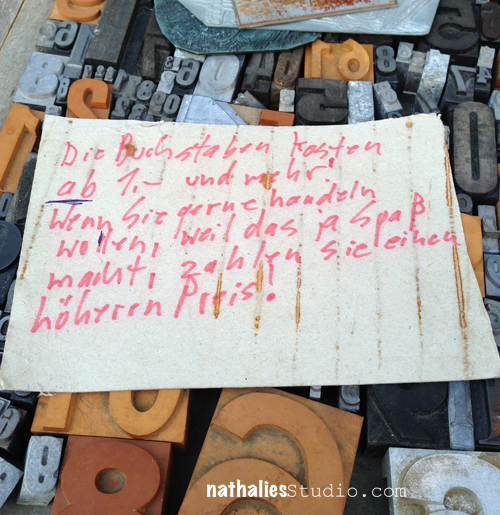 Die Buchstaben kosten
ab 1,- und mehr!
Wenn Sie gerne handeln
wollen, weil das ja Spaß
macht, zahlen sie einen
höheren Preis!
nathaliesStudio.com